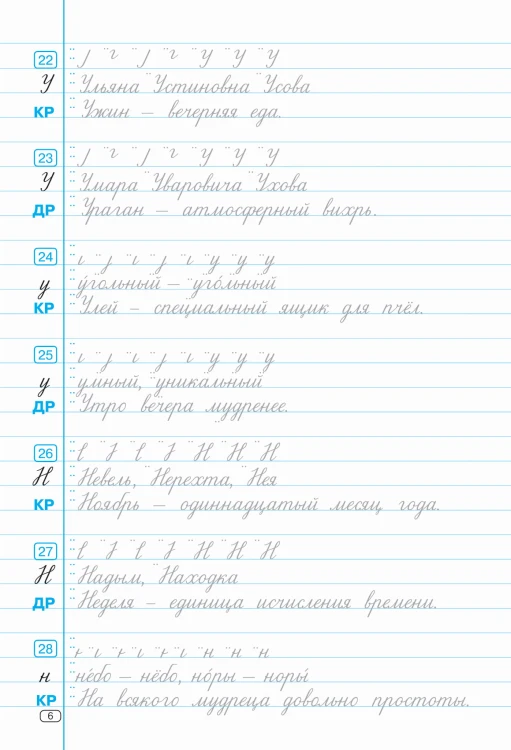 22
У Ульяна Устиновна Усова
КР Ужин – вечерняя еда.
23 У У У
У Умара Уваровича Ухова
ДР Ураган – атмосферный вихрь.
24 у у у
у у́гольный – уго́льный
КР Улей – специальный ящик для пчёл.
25 у у у
у умный, уникальный
ДР Утро вечера мудренее.
26 Н Н Н
Н Невель, Нерехта, Нея
КР Ноябрь – одиннадцатый месяц года.
27 Н Н Н
Н Надым, Находка
ДР Неделя – единица исчисления времени.
28 н н н
н не́бо – нёбо, но́ры – норы́
КР На всякого мудреца довольно простоты.
6